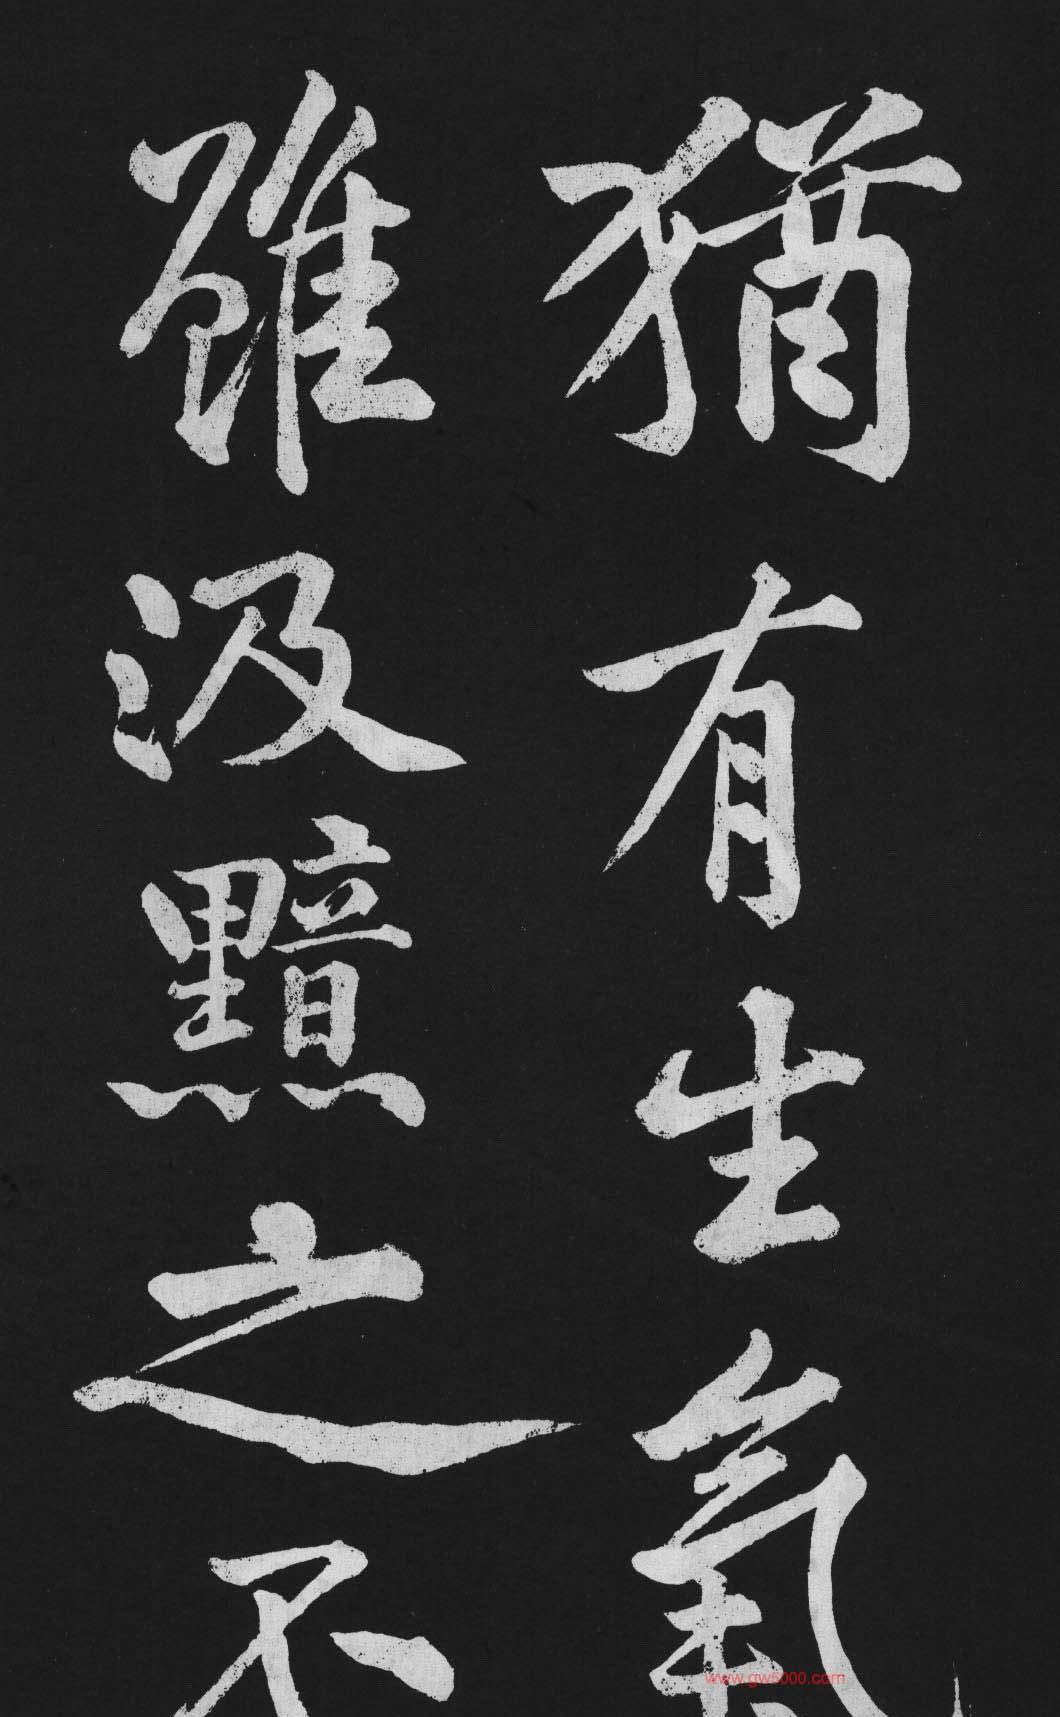 猶有生氣
雖汲黯之不
www.gw5000.com